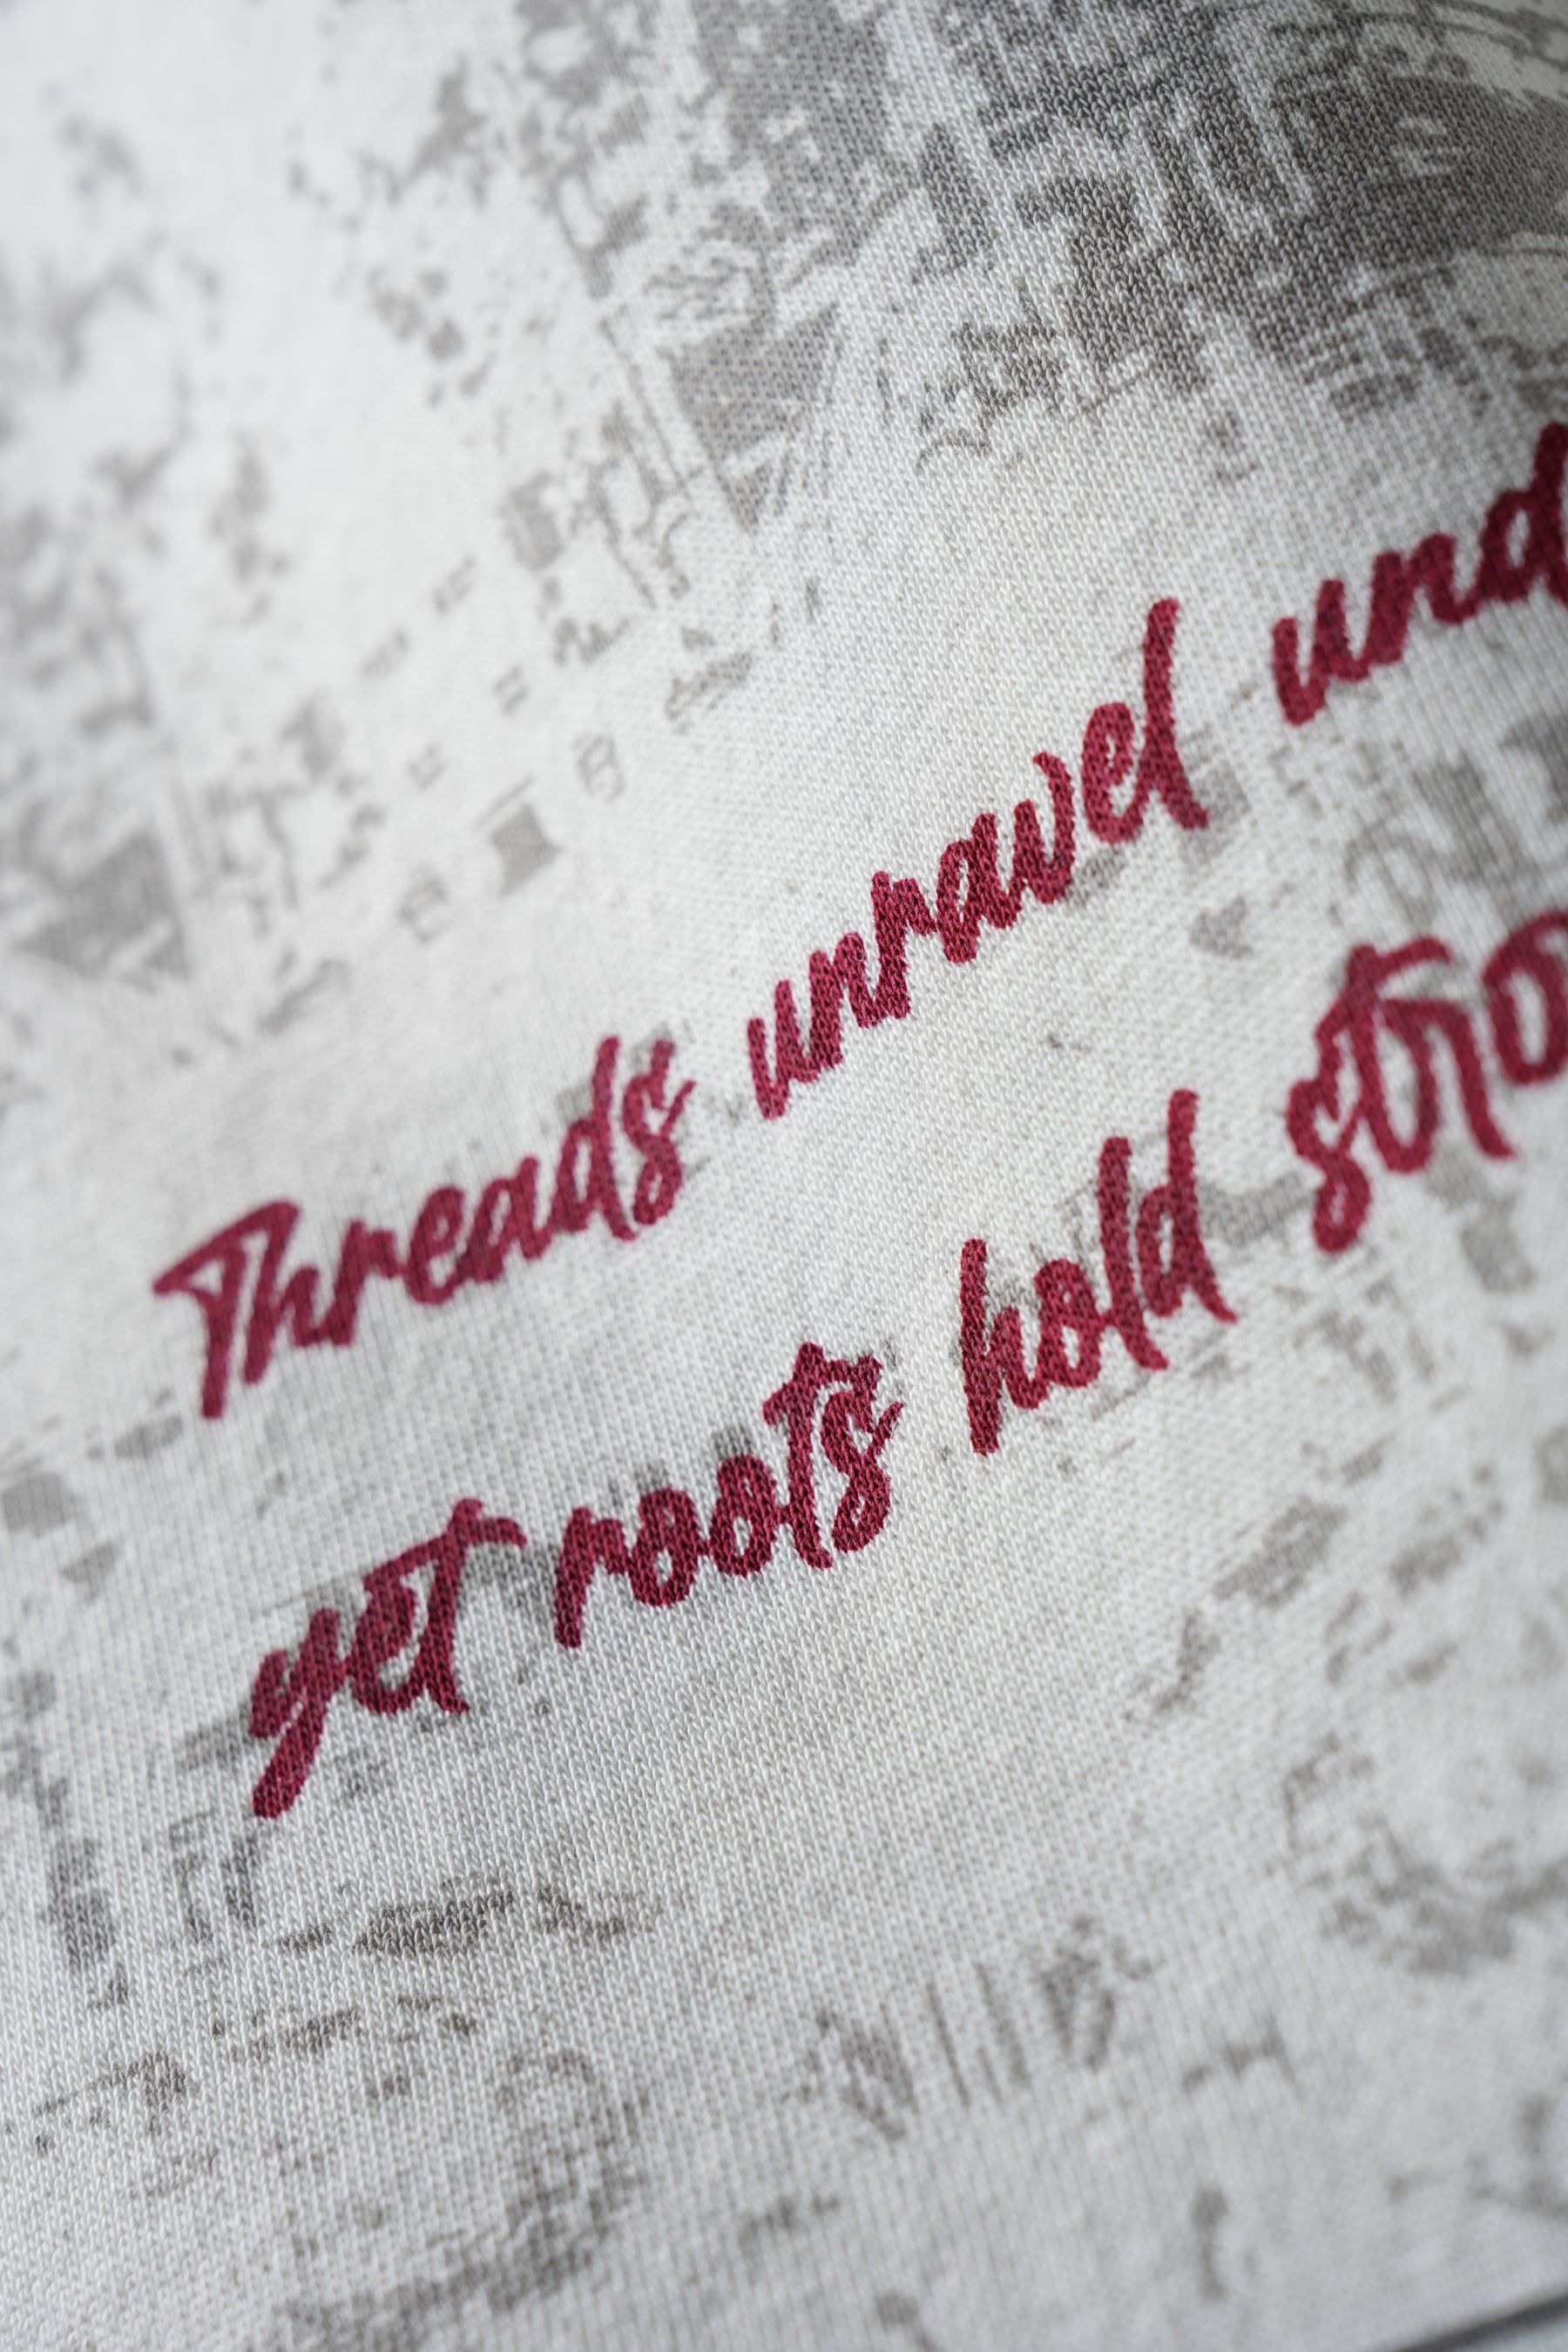 Threads unravel und
yet roots hold stro